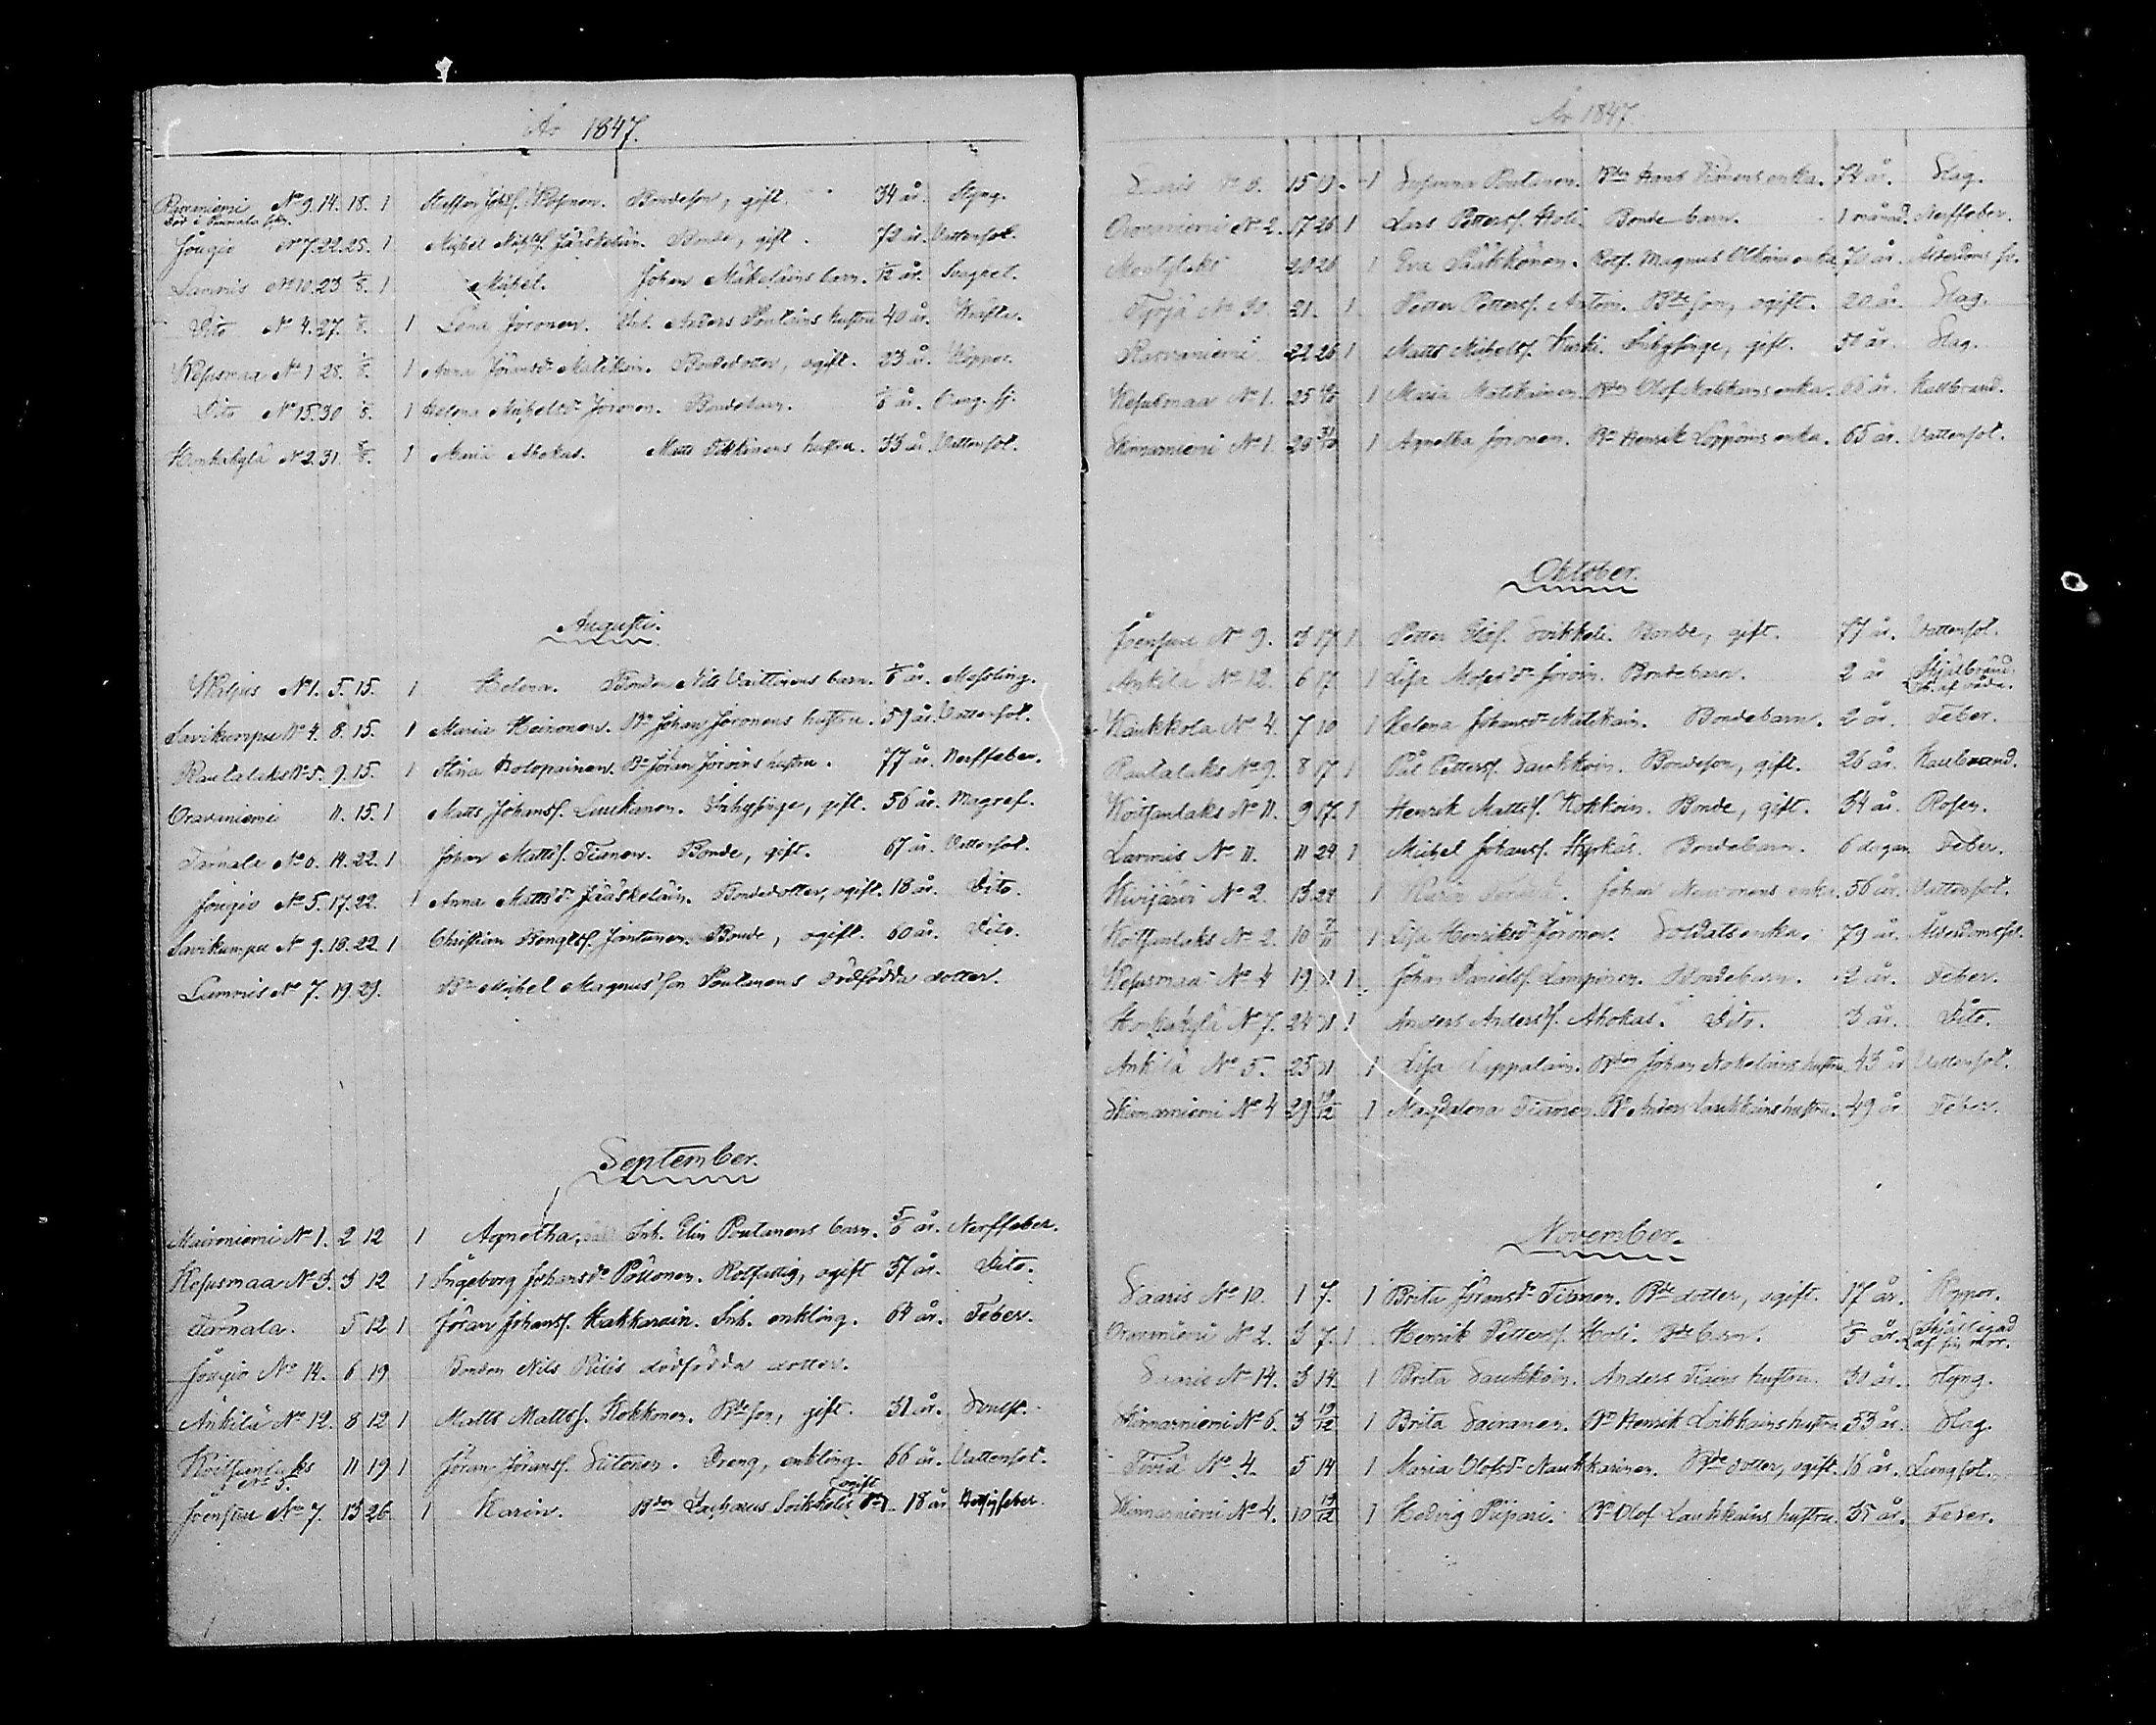 År 1847.
Ravaniemi No 9. 14. 18. 1 Staffan Johsf. Bondeson, gift. 34 år. Styng.
Jougio No 7. 22. 25. 1 Michel Jääskeläin. Bonde, gift. 72 år. Vattensot.
Lammis No 10. 23 1/8. 1 Michel. Johan Mäkeläins barn. år.
Dito No 4. 27. 1/8. 1 Lena Joronen. Inh. Anders Poutains hustru 40 år.
Kepsmaa No 1 28. 1/8. 1 Anna Jöransdr Matikain. Bondedotter, ogift. 23 år. Koppor.
Dito No 15. 30 1/8. 1 Helena Michelsdr Joronen. Bondebarn. år.
Honkakylä No 2. 31. 8/8. 1 Maria Ahokas. Matts Tikkinens hustru. 33 år. Vattensot.
Augusti.
No 1. 5. 15. 1 Helena. Bonden Nils Vaittinens barn. år. Messling.
Savikumpu No 4. 8. 15. 1 Maria Heinonen. Bn Johan Joronens hustru. 59 år. Vattensot.
Rautalaks No 5. 9. 15. 1 Stina Kolopainen. Bn Jöran Joroins hustru. 77 år. Nerffeber.
Oravaniemi 11. 15. 1 Matts Johansf. Luukanen. Inhysinge, gift. 56 år. Magref.
Tarnala No 6. 14. 22. 1 Johan Mattsf. Tianen. Bonde, gift. 67 år. Vattensot.
Jougio No 5. 17. 22. 1 Anna Mattsdr Jääskeläin. Bondedotter, ogift. 18 år. Dito.
Savikumpu No 9. 18. 22 1 Christian Bengtsf. Jantunen. Bonde, ogift. 60 år. Dito.
Lammis No 7. 19. 29. Bn Michel Magnusson Poutanens dödfödda dotter.
September.
No 1. 2 12 1 Agnetha, Inh. Elin Poutanens barn. 5/6 år. Nerffeber.
Kepsmaa No 3. 3 12 1 Ingeborg Johansdr Pöllönen. Rotfattig, ogift 37 år. Dito.
Tarnala. 5 12 1 Jöran Johansf. Kakkarain. Inh. enkling. 64 år. Feber.
Jougio No 14. 6 19 Bonden Nils Piilis dödfödda dotter.
Ankilä No 12. 8 12 1 Matts Mattsf. Kokkonen. Bdeson, gift. 31 år.
Koitsanlaks No 3. 11 19 1 Jöran Jöransf. Siitonen. Dreng, enkling. 66 år. Vattensot.
Joensuu No 7. 13 26. 1 Karin. Bden Zacharias Soikkelis ogift dr 18 år Hetsigfeber.
År 1847.
Saaris No 6. 15 19. 1 Susanna Poutanen. Bden Hans Tianens enka. 74 år. Slag.
Oravaniemi No 2. 17 26 1 Lars Pettersf. Holi. Bonde barn. 1 månad. Nerffeber.
Montylaks 20 26 1 Eva Pääkkönen. Rotf. Magnus enka 70 år.
Tyrjä No 30. 21. 1 Petter Pettersf. Bdeson, ogift. 20 år. Slag.
Rasvaniemi 22 26 1 Matts Michelsf. Kurki. Inhysinge, gift. 50 år. Slag.
Kesusmaa No 1. 25 1 Maria Matikainen. Bden Olof Matikains enka. 66 år. Kallbrand.
Kinnarniemi No 1. 29 31/10 1 Agnetha Joronen. Bn Henrik Löppöins enka. 65 år. Vattensot.
Oktober.
Joensuu No 9. 3 17. 1 Petter Soikkeli. Bonde, gift. 77 år. Vattensot.
Ankilä No 12. 6 17 1 Lisa Mosesdr Joroin. Bondebarn. 2 år af våda.
Kaukkola No 4. 7 10 1 Helena Johansdr Matikain. Bondebarn. 2 år. Feber.
Rautalaks No 9. 8 17 1 Pål Pettersf. Saukkoin. Bondeson, gift. 26 år. Kallbrand.
Koitsanlaks No 11. 9 17. 1 Henrik Mattsf. Kokkoin. Bonde, gift. 34 år. Rosen.
Lammis No 11. 11 24 1 Michel Johansf. Hyrkäs. Bondebarn. 6 dagar Feber.
Kivijärvi No 2. 13 24 1 Karin Johan enka. 56 år. Vattensot.
Koitsanlaks No 2. 16 7/11 1 Lisa Henriksdr Joronen. Soldats enka. 79 år. Ålderdomssv.
Kesusmaa No 4 19. 31 1 Johan Danielsf. Lampinen. Bondebarn. 2 år. Feber.
Honkakylä No 7. 24 31 1 Anders Andersf. Ahokas. Dito. 3 år. Dito.
Ankilä No 5. 25 31 1 Lisa Lappalain. Bden Johan hustru 43 år Vattensot.
Kinnarniemi No 4 29 19/12 1 Magdalena Tianen. Bn Anders Laukkains hustru. 49 år. Feber.
November.
Saaris No 10. 1 7. 1 Brita Jöransdr Tianen. Bdedotter, ogift. 17 år. Koppor.
Oravaniemi No 2. 3 7. 1 Henrik Pettersf. Holi. Bdebarn. 1/5 år. Ihjällegad af sin mor.
Saaris No 14. 3 14. 1 Brita Saukkoin. Anders Tiains hustru. 30 år. Styng.
Kinnarniemi No 6. 3 19/12 1 Brita Sairanen. Bn Henrik hustru 53 år. Slag.
No 4. 5 14 1 Maria Olofsdr Naukkarinen. Bdedotter, ogift. 16 år. Lungsot.
Kinnarniemi No 4. 10 19/12 1 Hedvig Piipari. Bn Olof Laukkains hustru. 35 år. Feber.